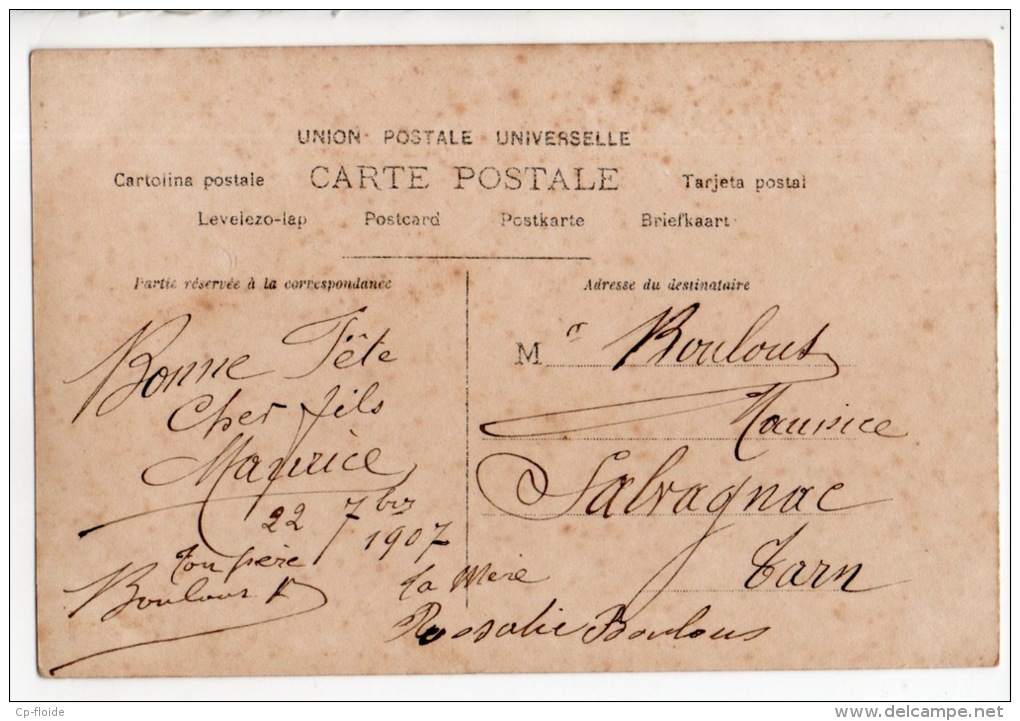 UNION POSTALE UNIVERSELLE
Cartolina postale CARTE POSTALE Tarjeta postal
Levelezo-lap Postcard Postkarte Briefkaart
Partie réservée à la correspondance
Bonne Fête
Cher fils
Maurice
22 7bre
1907
Ton père
Boulous
ta Mère
Rosalie Boulous
Adresse du destinataire
Mr Boulous
Maurice
Salvagnac
Tarn
Cp-floide
delcampe.net